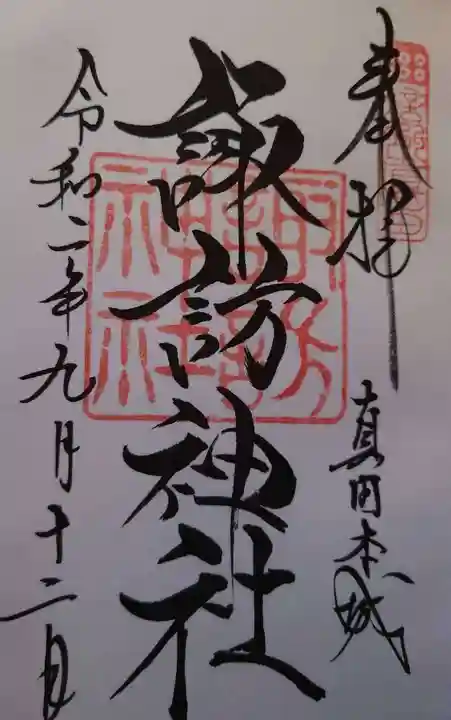 奉拝
真田本城
諏訪神社
令和二年九月十二日
諏訪神社